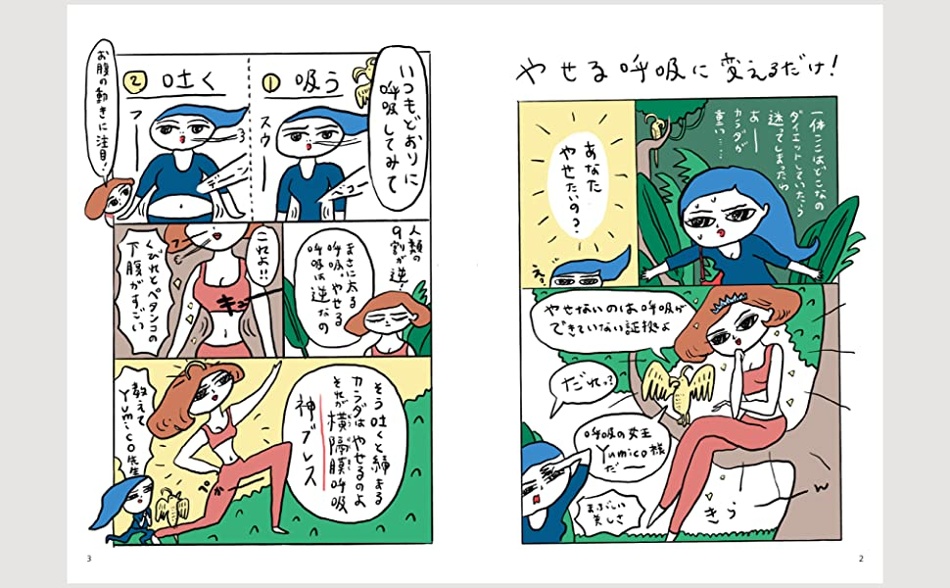 やせる呼吸に変えるだけ!
一体ここはどこなの
ダイエットしていたら
迷ってしまったわ
あー
カラダが
重い……
あなた
やせたいの?
え?
やせないのは呼吸が
できていない証拠よ
だれっ?
呼吸の女王
Yumico様
だー
まぶしい
美しさ
きら
2
いつもどおりに
呼吸してみて
① 吸う
スウー
② 吐く
フー
お腹の動きに注目!
人類の
9割が逆!
まさに太る
呼吸、やせる
呼吸は逆なの
これよ!!
キュッ
くびれとペタンコの
下腹がすごい
そう吐くと締まる
カラダはやせるのよ
それが横隔膜呼吸
神ブレス
教えて
Yumico先生
3